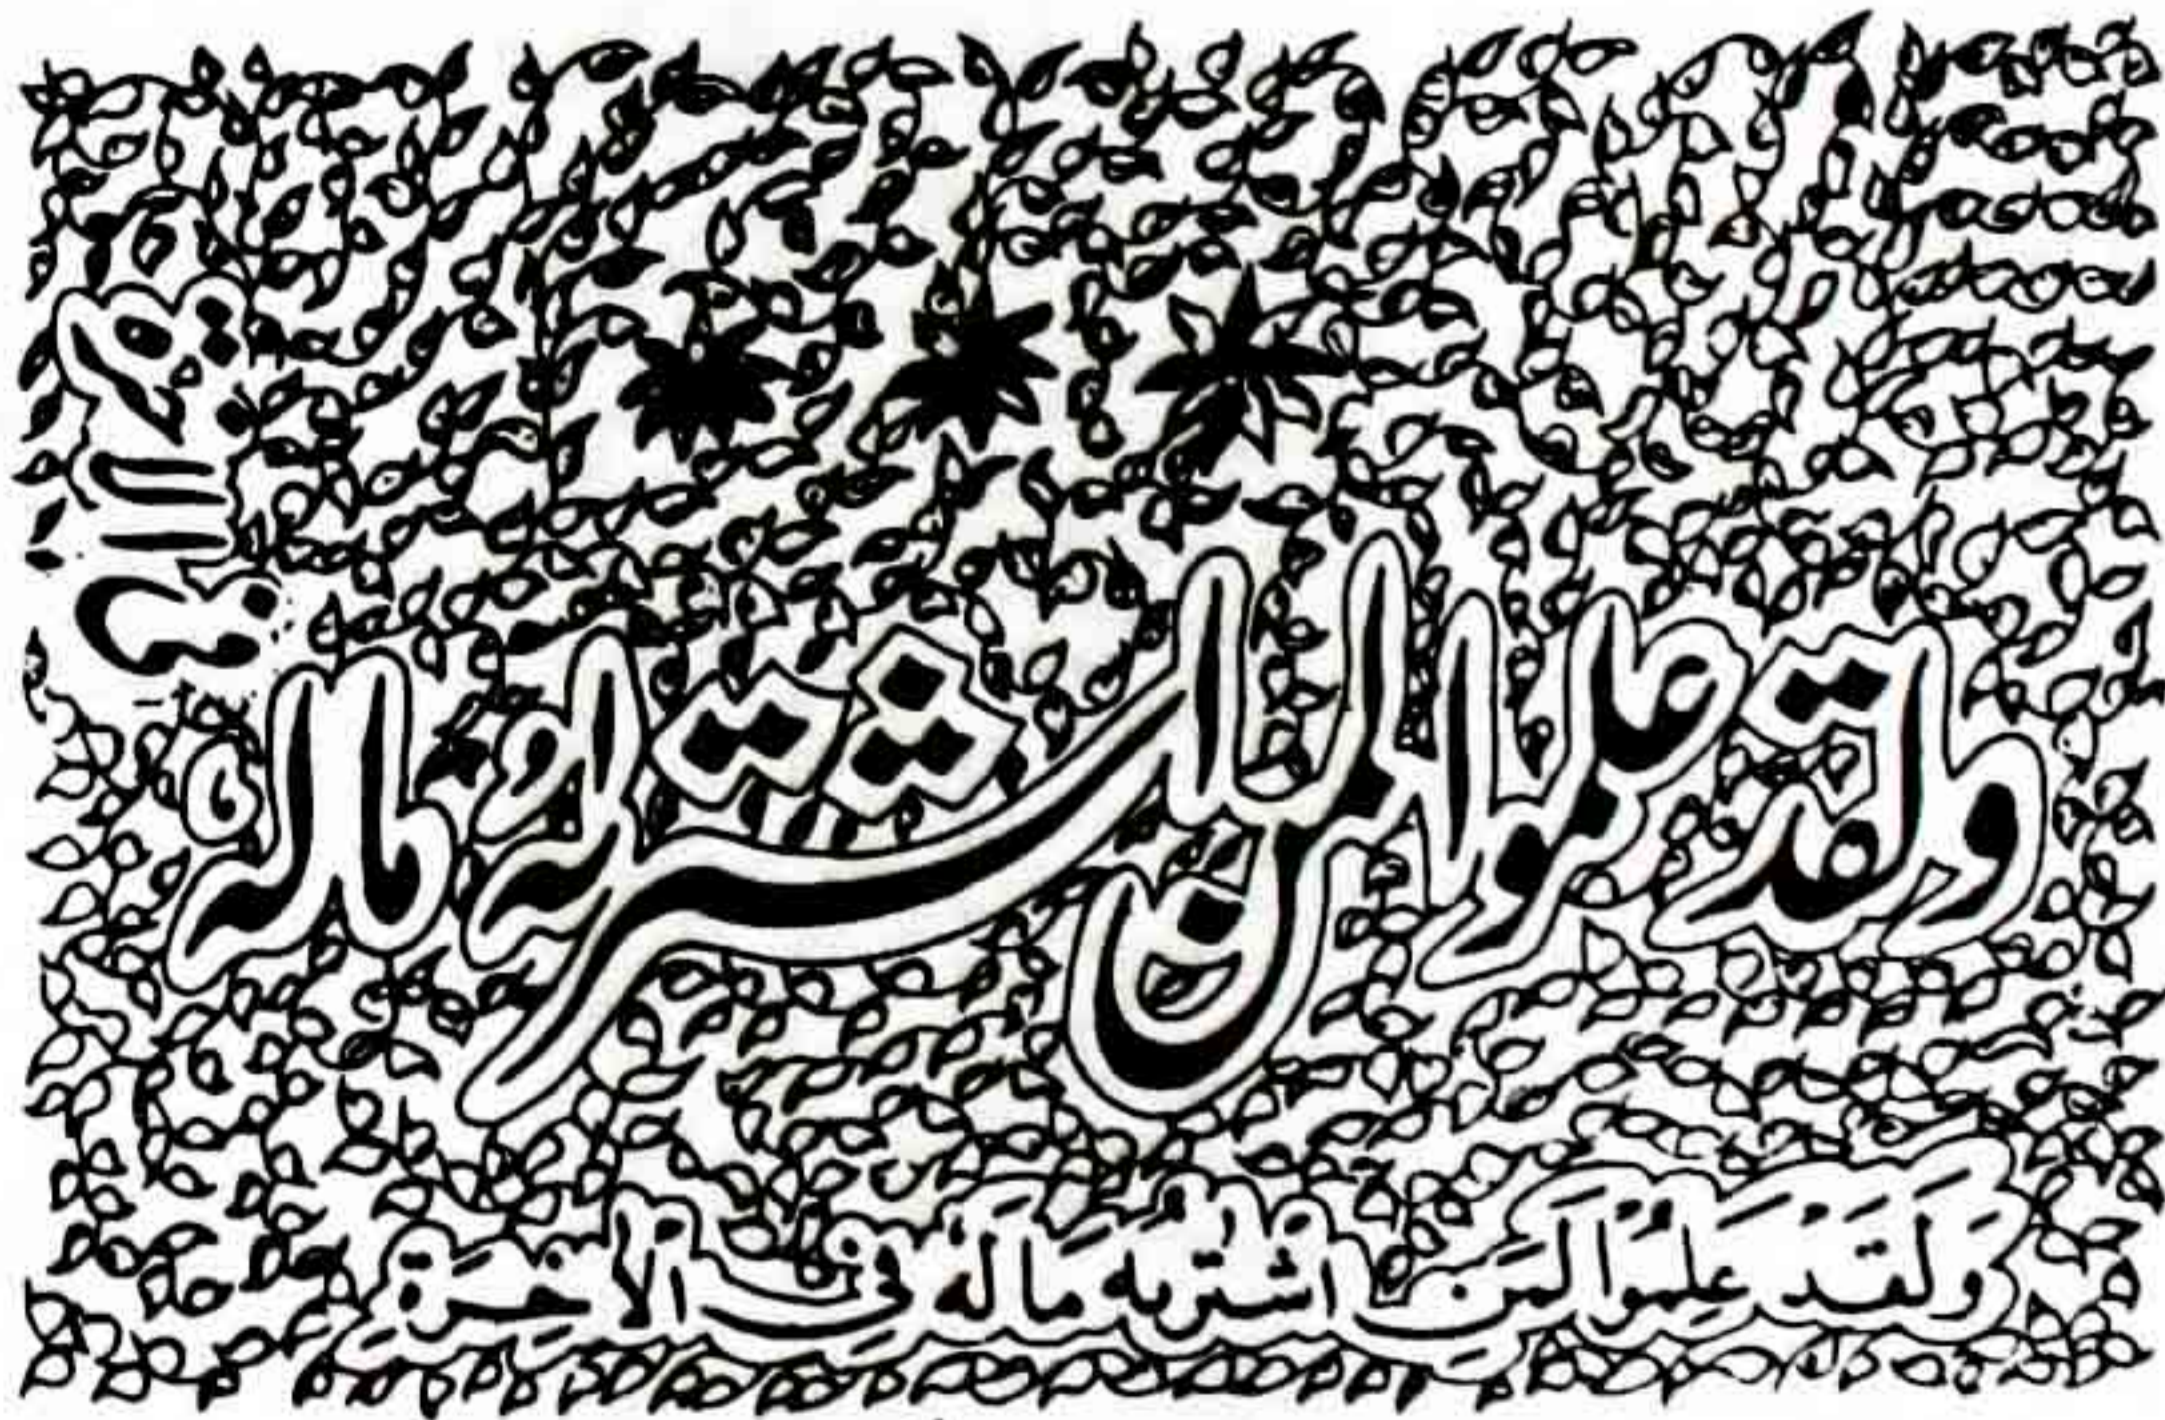 ولقد علموا لمن اشتراه ماله
في الاخرة
وَلَقَدْ عَلِمُوا لَمَنِ اشْتَریهُ مَا لَهُ فِی الْاٰخِرَةِ